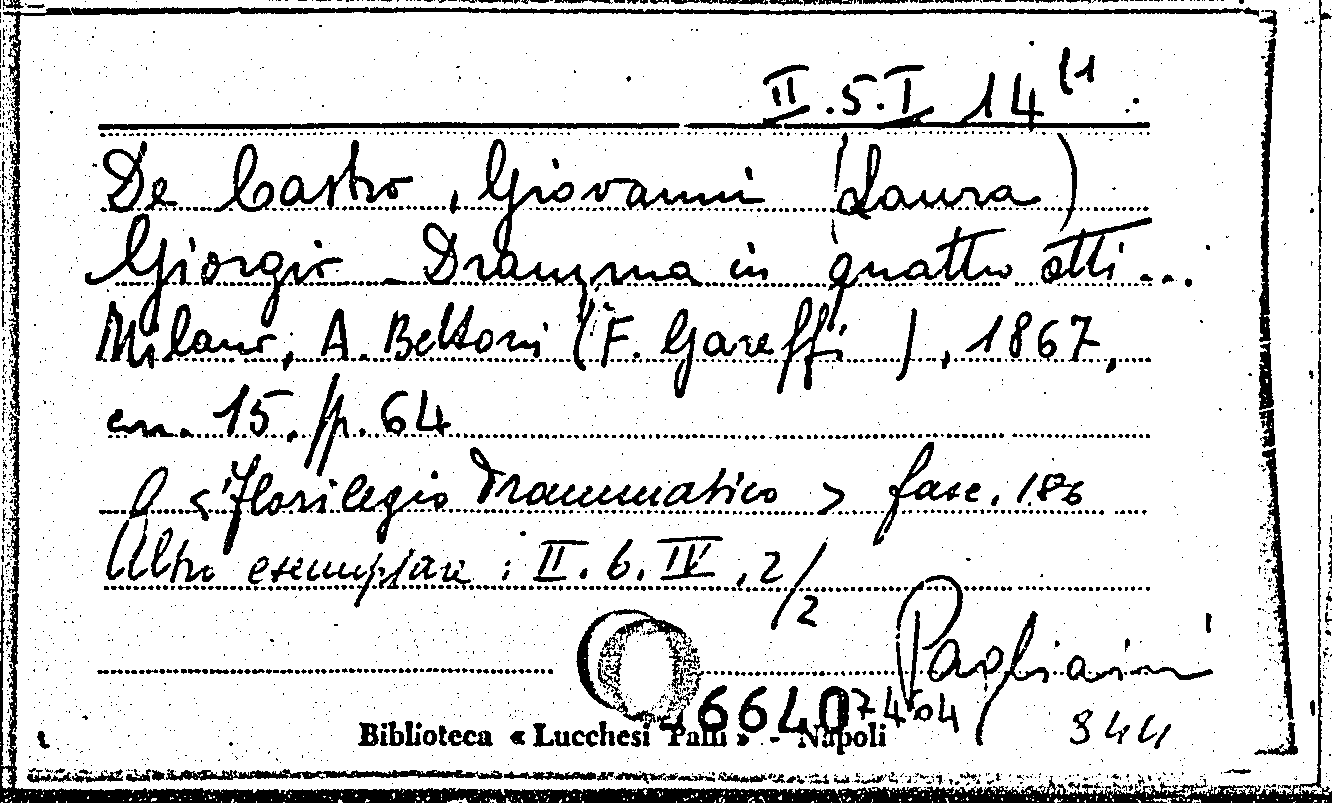 II.5.I 14 (1
De Castro, Giovanni (Laura)
Giorgio - Dramma in quattro atti...
Milano, A. Bettoni (F. Gareffi), 1867,
cm. 15, pp. 64
"Florilegio Drammatico" fasc. 186
Altro esemplare: II. 6. IV, 2/2
Pagliaini
66407464
Biblioteca « Lucchesi Palli » - Napoli
344